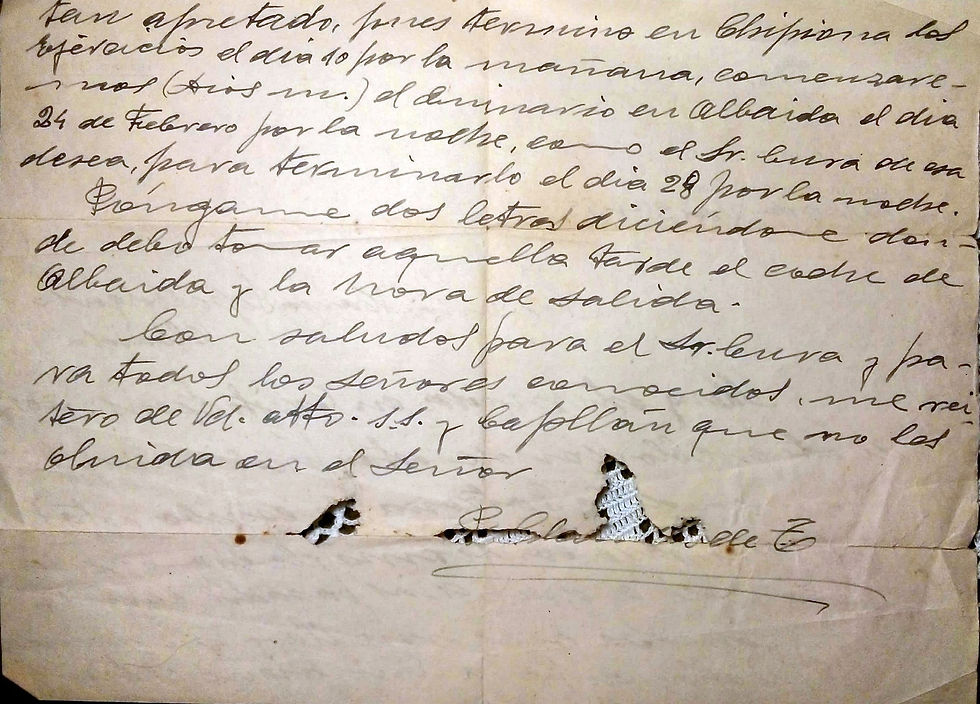 tan apretado, pues termino en Chipiona los
Ejercicios el dia 10 por la mañana, comenzare-
mos (Dios m.) el Quinario en Albaida el dia
24 de Febrero por la noche, como el Sr. Cura de esa
desea, para terminarlo el dia 28 por la noche.
Póngame dos letras diciéndome don-
de debo tomar aquella tarde el coche de
Albaida y la hora de salida.
Con saludos para el Sr. Cura y pa-
ra todos los señores conocidos, me rei-
tero de Vd. atto. s.s. y Capellán que no les
olvida en el Señor